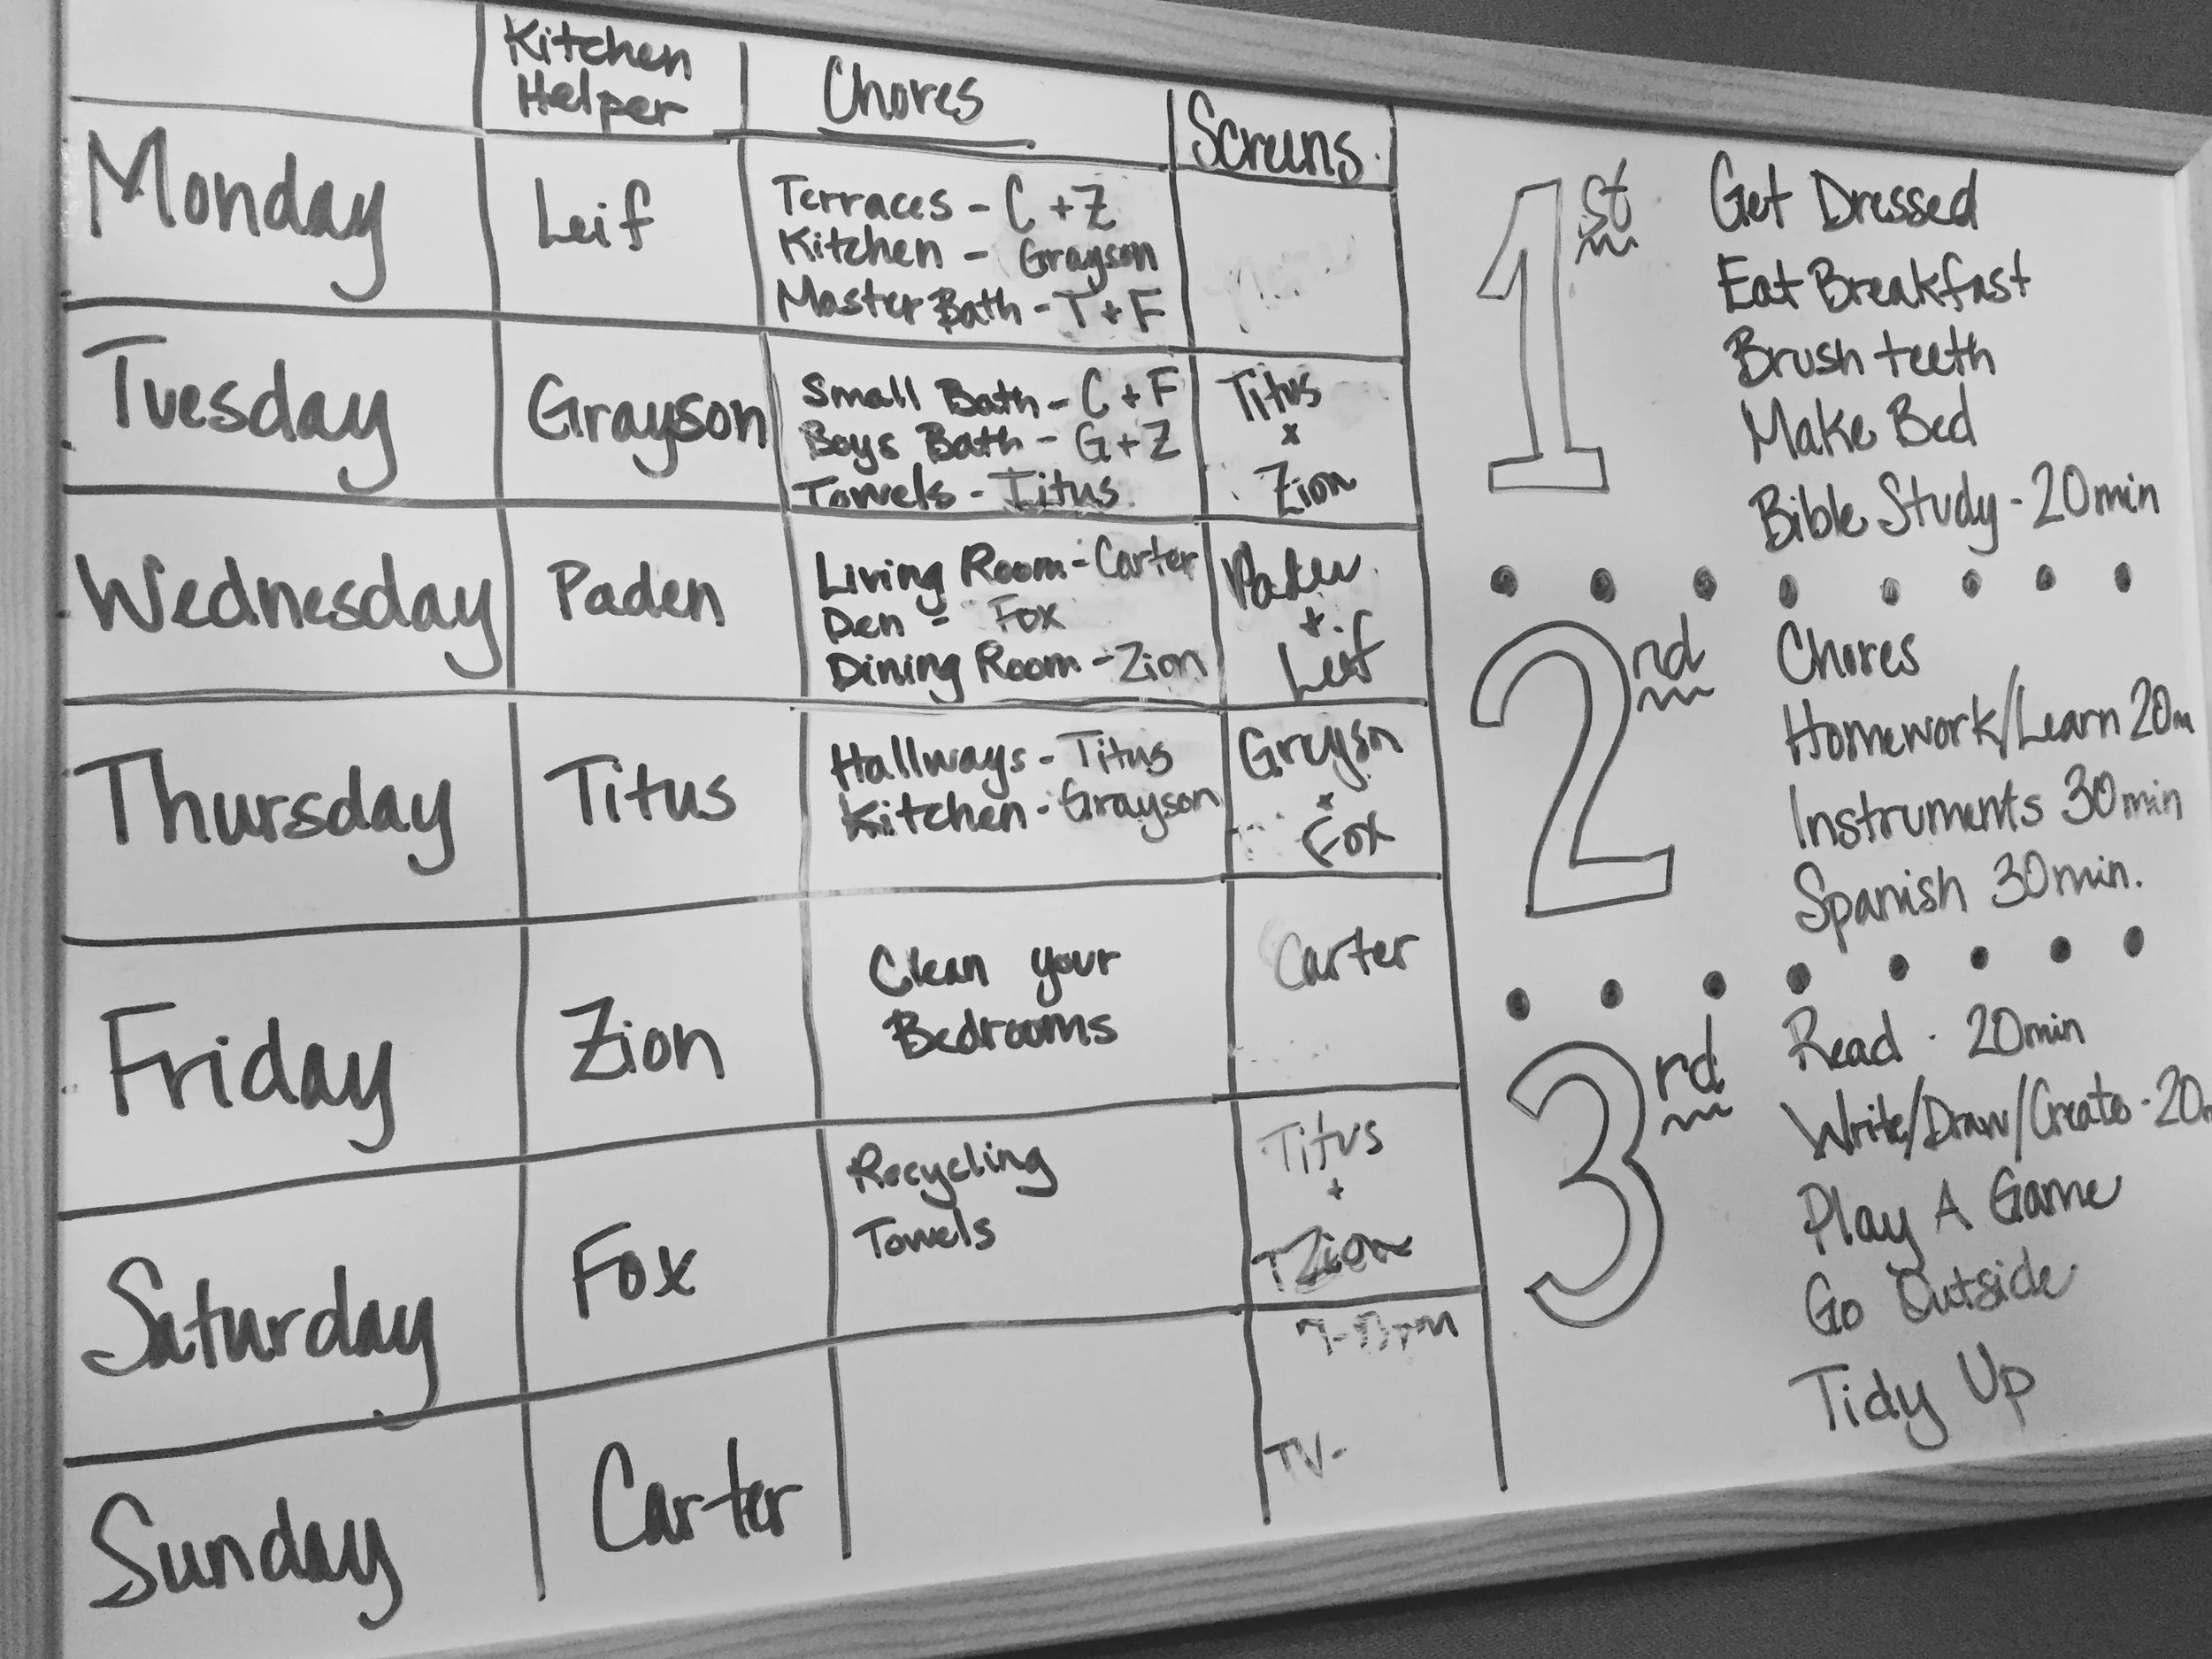 Kitchen
Helper
Chores
Screens
Monday
Leif
Terraces - C + Z
Kitchen - Grayson
Master Bath - T + F
Tuesday
Grayson
Small Bath - C + F
Boys Bath - G + Z
Towels - Titus
Titus
+
Zion
Wednesday
Paden
Living Room - Carter
Den - Fox
Dining Room - Zion
Paden
+
Leif
Thursday
Titus
Hallways - Titus
Kitchen - Grayson
Grayson
+
Fox
Friday
Zion
Clean your
Bedrooms
Carter
Saturday
Fox
Recycling
Towels
Titus
+
Zion
Sunday
Carter
TV-
1st
Get Dressed
Eat Breakfast
Brush teeth
Make Bed
Bible Study - 20 min
2nd
Chores
Homework/Learn 20m
Instruments 30 min
Spanish 30 min.
3rd
Read - 20 min
Write/Draw/Create - 20
Play A Game
Go Outside
Tidy Up